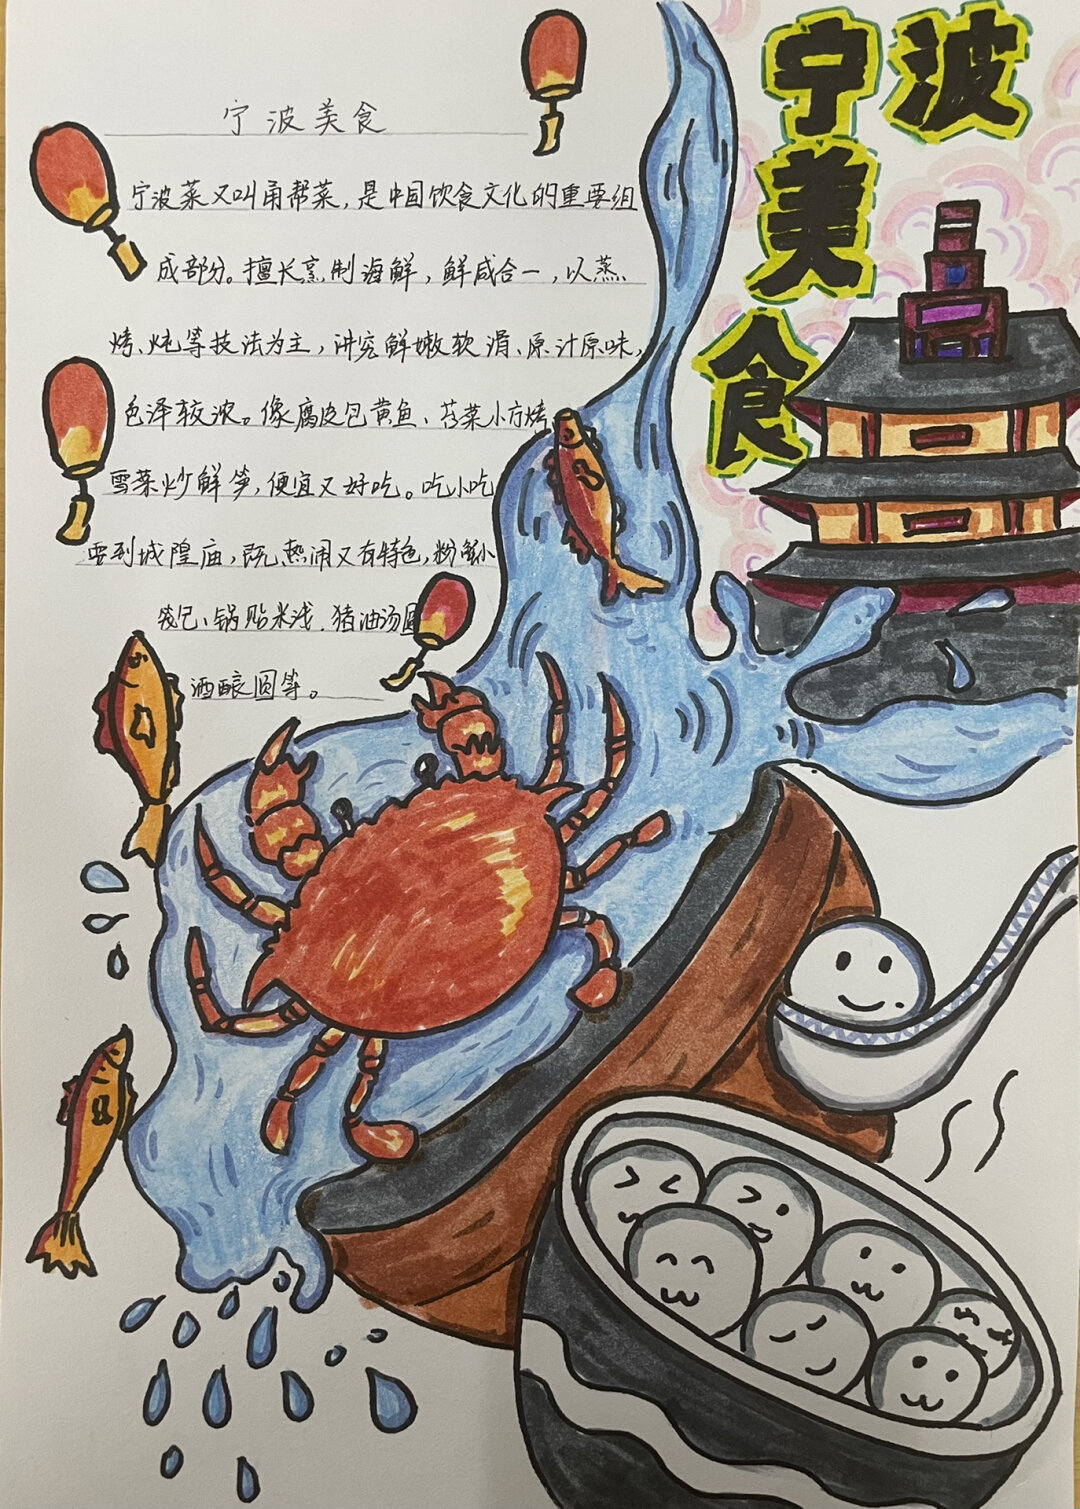 宁波美食
宁波美食
宁波菜又叫甬帮菜，是中国饮食文化的重要组
成部分。擅长烹制海鲜，鲜咸合一，以蒸、
烤、炖等技法为主，讲究鲜嫩软滑、原汁原味，
色泽较浓。像腐皮包黄鱼、苔菜小方烤
雪菜炒鲜笋，便宜又好吃。吃小吃
要到城隍庙，既热闹又有特色，
锅贴米浅．猪油汤圆
酒酿圆等。